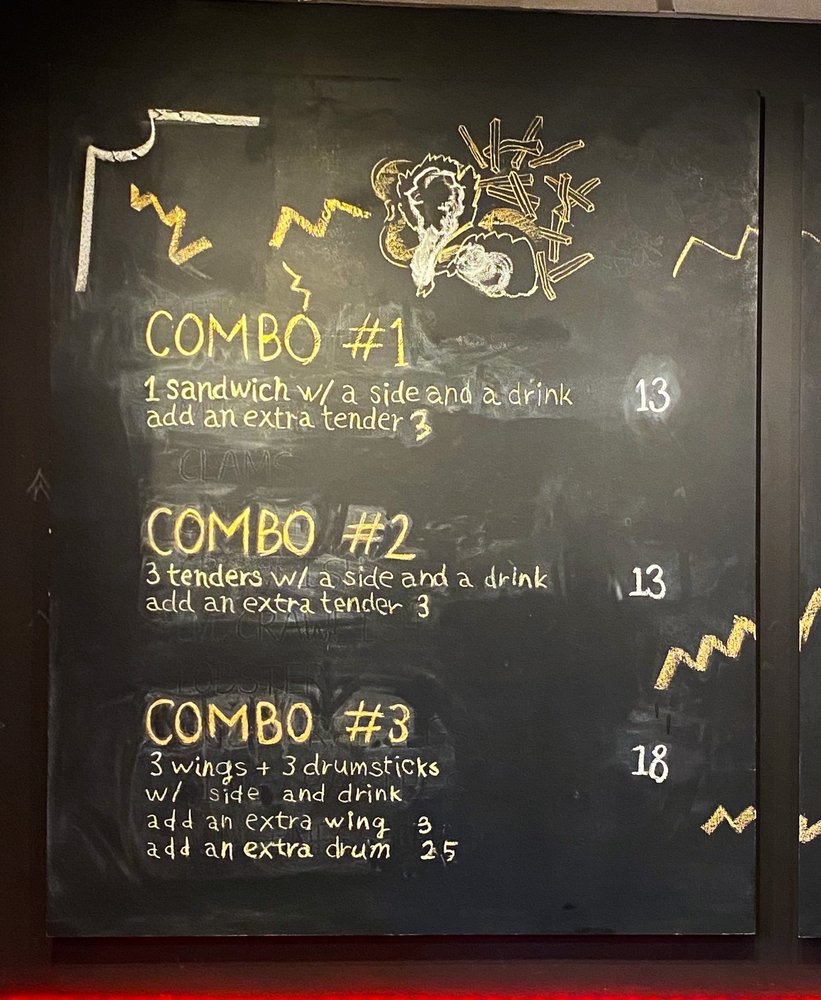 COMBO #1
1 sandwich w/ a side and a drink 13
add an extra tender 3
CLAMS
COMBO #2
3 tenders w/ a side and a drink 13
add an extra tender 3
COMBO #3
3 wings + 3 drumsticks 18
w/ side and drink
add an extra wing 3
add an extra drum 25